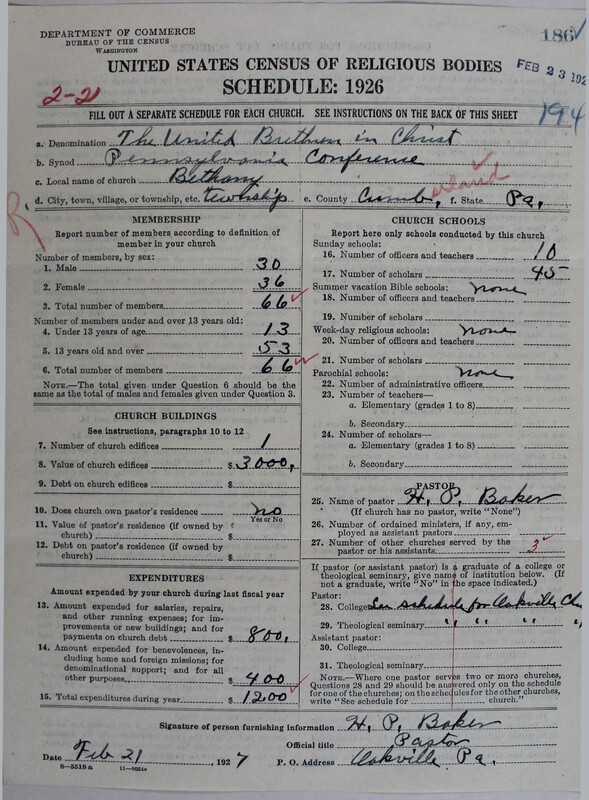 DEPARTMENT OF COMMERCE
BUREAU OF THE CENSUS
WASHINGTON
186
UNITED STATES CENSUS OF RELIGIOUS BODIES
FEB 23 192
SCHEDULE: 1926
2-2
FILL OUT A SEPARATE SCHEDULE FOR EACH CHURCH. SEE INSTRUCTIONS ON THE BACK OF THIS SHEET
194
a. Denomination The United Brethren in Christ
b. Synod Pennsylvania Conference
c. Local name of church Bethany
d. City, town, village, or township, etc. township e. County Cumberland f. State Pa.
R
MEMBERSHIP
Report number of members according to definition of
member in your church
Number of members, by sex:
1. Male 30
2. Female 36
3. Total number of members 66
Number of members under and over 13 years old:
4. Under 13 years of age 13
5. 13 years old and over 53
6. Total number of members 66
NOTE.—The total given under Question 6 should be
same as the total of males and females given under Question 3.
CHURCH BUILDINGS
See instructions, paragraphs 10 to 12
7. Number of church edifices 1
8. Value of church edifices $ 3000,
9. Debt on church edifices $
10. Does church own pastor's residence no
Yes or No
11. Value of pastor's residence (if owned by
church) $
12. Debt on pastor's residence (if owned by
church) $
EXPENDITURES
Amount expended by your church during last fiscal year
13. Amount expended for salaries, repairs,
and other running expenses; for im-
provements or new buildings; and for
payments on church debt $ 800,
14. Amount expended for benevolences, in-
cluding home and foreign missions; for
denominational support; and for all
other purposes $ 400
15. Total expenditures during year $ 1200
CHURCH SCHOOLS
Report here only schools conducted by this church
Sunday schools:
16. Number of officers and teachers 10
17. Number of scholars 45
Summer vacation Bible schools: none
18. Number of officers and teachers
19. Number of scholars
Week-day religious schools: none
20. Number of officers and teachers
21. Number of scholars
Parochial schools: none
22. Number of administrative officers
23. Number of teachers—
a. Elementary (grades 1 to 8)
b. Secondary
24. Number of scholars—
a. Elementary (grades 1 to 8)
b. Secondary
PASTOR
25. Name of pastor H. P. Baker
(If church has no pastor, write "None")
26. Number of ordained ministers, if any, em-
ployed as assistant pastors
27. Number of other churches served by the
pastor or his assistants 3
If pastor (or assistant pastor) is a graduate of a college or
theological seminary, give name of institution below. (If
not a graduate, write "No" in the space indicated.)
Pastor:
28. College See schedule for Oakville Ch
29. Theological seminary " " " "
Assistant pastor:
30. College
31. Theological seminary
NOTE.—Where one pastor serves two or more churches,
Questions 28 and 29 should be answered only on the schedule
for one of the churches; on the schedules for the other churches,
write "See schedule for church."
Signature of person furnishing information H. P. Baker
Official title Pastor
Date Feb 21, 1927 P. O. Address Oakville Pa.
8—5518a